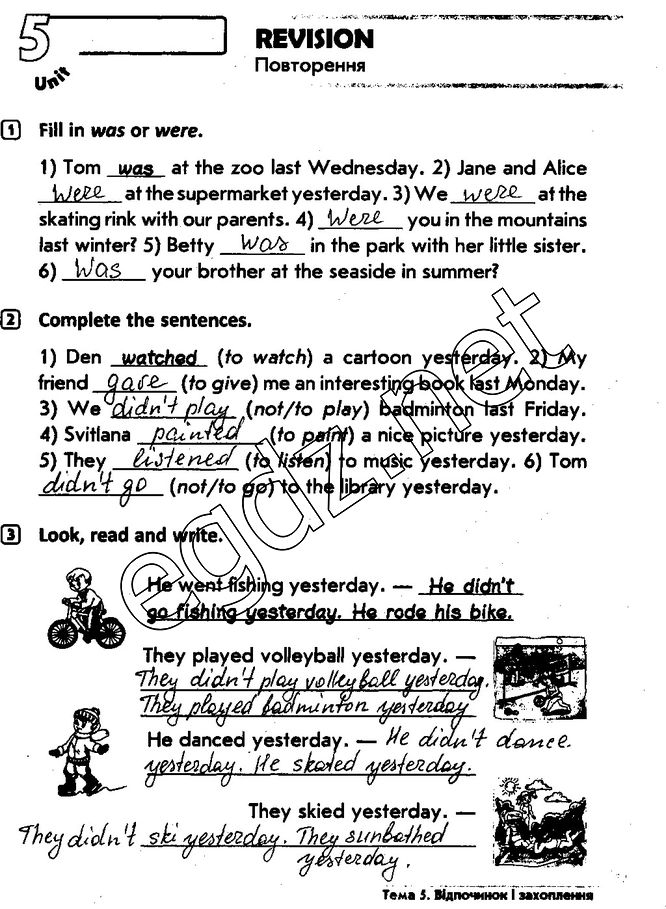 5
Unit
REVISION
Повторення
1 Fill in was or were.
1) Tom was at the zoo last Wednesday. 2) Jane and Alice
Were at the supermarket yesterday. 3) We were at the
skating rink with our parents. 4) Were you in the mountains
last winter? 5) Betty was in the park with her little sister.
6) Was your brother at the seaside in summer?
2 Complete the sentences.
1) Den watched (to watch) a cartoon yesterday. 2) My
friend gave (to give) me an interesting book last Monday.
3) We didn't play (not/to play) badminton last Friday.
4) Svitlana painted (to paint) a nice picture yesterday.
5) They listened (to listen) to music yesterday. 6) Tom
didn't go (not/to go) to the library yesterday.
3 Look, read and write.
He went fishing yesterday. — He didn't
go fishing yesterday. He rode his bike.
They played volleyball yesterday. —
They didn't play volleyball yesterday.
They played badminton yesterday
He danced yesterday. — He didn't dance
yesterday. He skated yesterday.
They skied yesterday. —
They didn't ski yesterday. They sunbathed
yesterday.
egdz.net
Тема 5. Відпочинок і захоплення